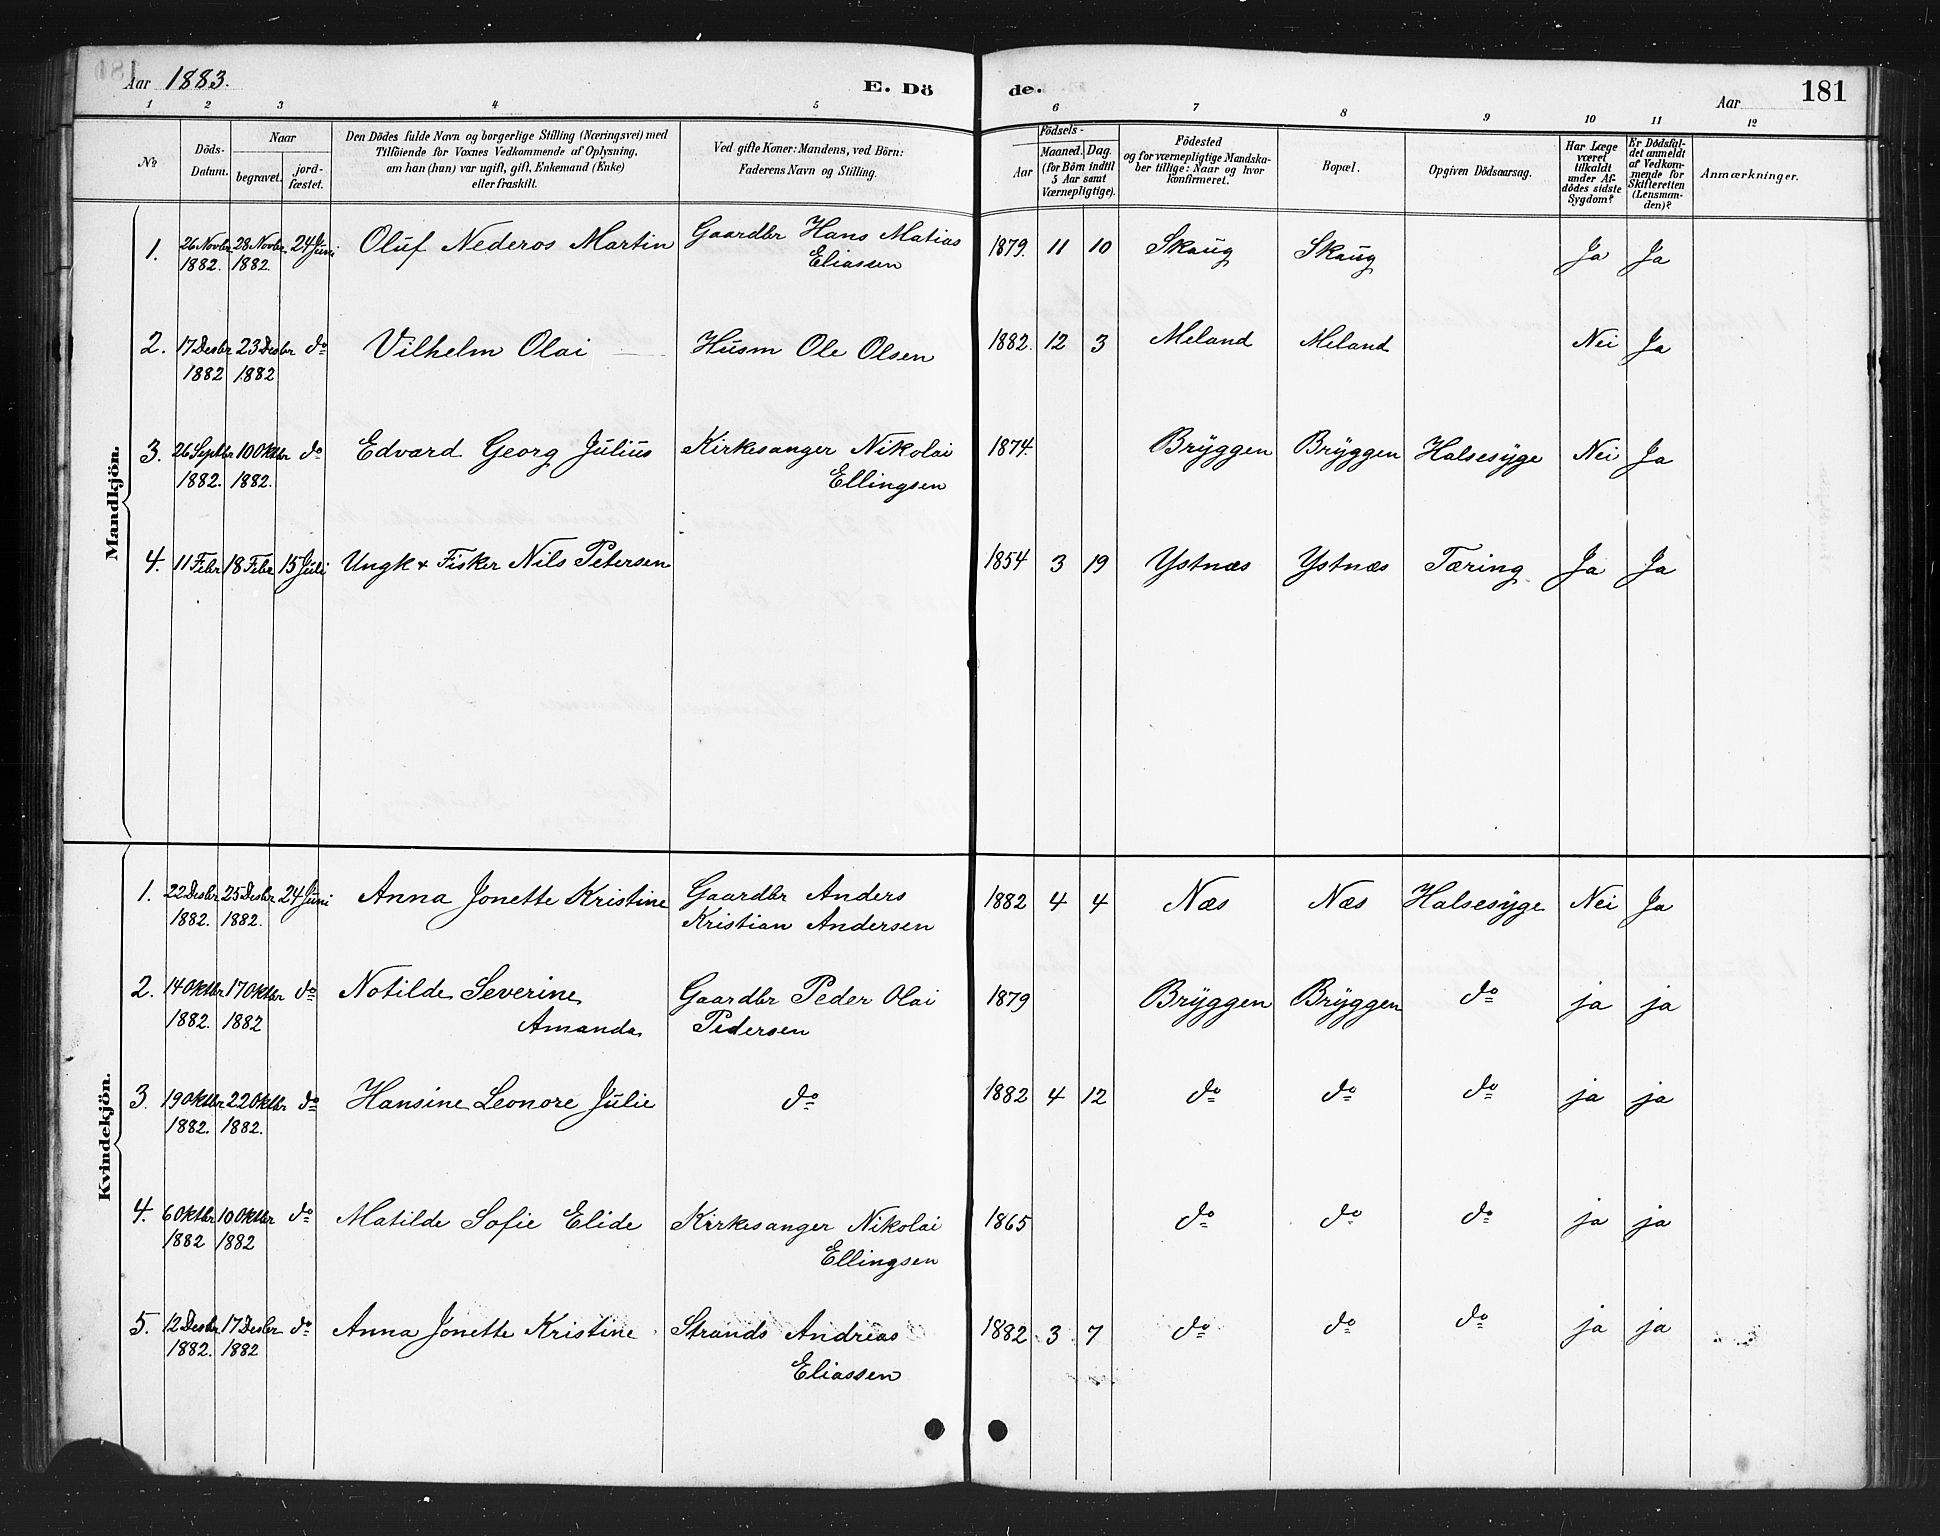 Aar 1883. E. Dö de. Aar 181
1 2 3 4 5 6 7 8 9 10 11 12
No
Döds-Datum.
Naar
begravet.
jord-fæstet.
Den Dödes fulde Navn og borgerlige Stilling (Næringsvei) med
Tilföiende for Voxnes Vedkommende af Oplysning,
om han (hun) var ugift, gift, Enkemand (Enke)
eller fraskilt.
Ved gifte Koner: Mandens, ved Börn:
Faderens Navn og Stilling.
Födsels-
Aar
Maaned. Dag.
(for Börn indtil
5 Aar samt
Værnepligtige).
Födested
og for værnepligtige Mandska-
ber tillige: Naar og hvor
konfirmeret.
Bopæl.
Opgiven Dödsaarsag.
Har Læge
været
tilkaldt
under Af-
dödes sidste
Sygdom?
Er Dödsfal-
det anmeldt
af Vedkom-
mende for
Skifteretten
(Lensman-
den)?
Anmærkninger.
Mandkjön.
1. 26 Novbr 28 Novbr 24 Juni Oluf Nederos Martin Gaardbr Hans Matias 1879. 11 10 Skaug Skaug Ja Ja
1882. 1882. Eliassen
2. 17 Desbr 23 Desbr do Vilhelm Olai Husm Ole Olsen 1882. 12 3 Meland Meland Nei Ja
1882 1882
3. 26 Septbr 10 Oktbr do Edvard Georg Julius Kirkesanger Nikolai 1874. Bryggen Bryggen Halsesyge Nei Ja
1882. 1882. Ellingsen
4. 11 Febr 18 Febr 15 Juli Ungk + Fisker Nils Petersen 1854 3 19 Ystnæs Ystnæs Tæring Ja Ja
Kvindekjön.
1. 22 Desbr 25 Desbr 24 Juni Anna Jonette Kristine Gaardbr Anders 1882 4 4 Næs Næs Halsesyge Nei Ja
1882. 1882. Kristian Andersen
2. 14 Oktbr 17 Oktbr do Notilde Severine Gaardbr Peder Olai 1879 Bryggen Bryggen do ja ja
1882. 1882 Amanda Pedersen
3. 19 Oktbr 22 Oktbr do Hansine Leonore Julie do 1882 4 12 do do do ja ja
1882. 1882.
4. 6 Oktbr 10 Oktbr do Matilde Sofie Elide Kirkesanger Nikolai 1865 do do do ja ja
1882 1882 Ellingsen
5. 12 Desbr 17 Desbr do Anna Jonette Kristine Strands Andreas 1882 3 7 do do do ja ja
1882. 1882 Eliassen